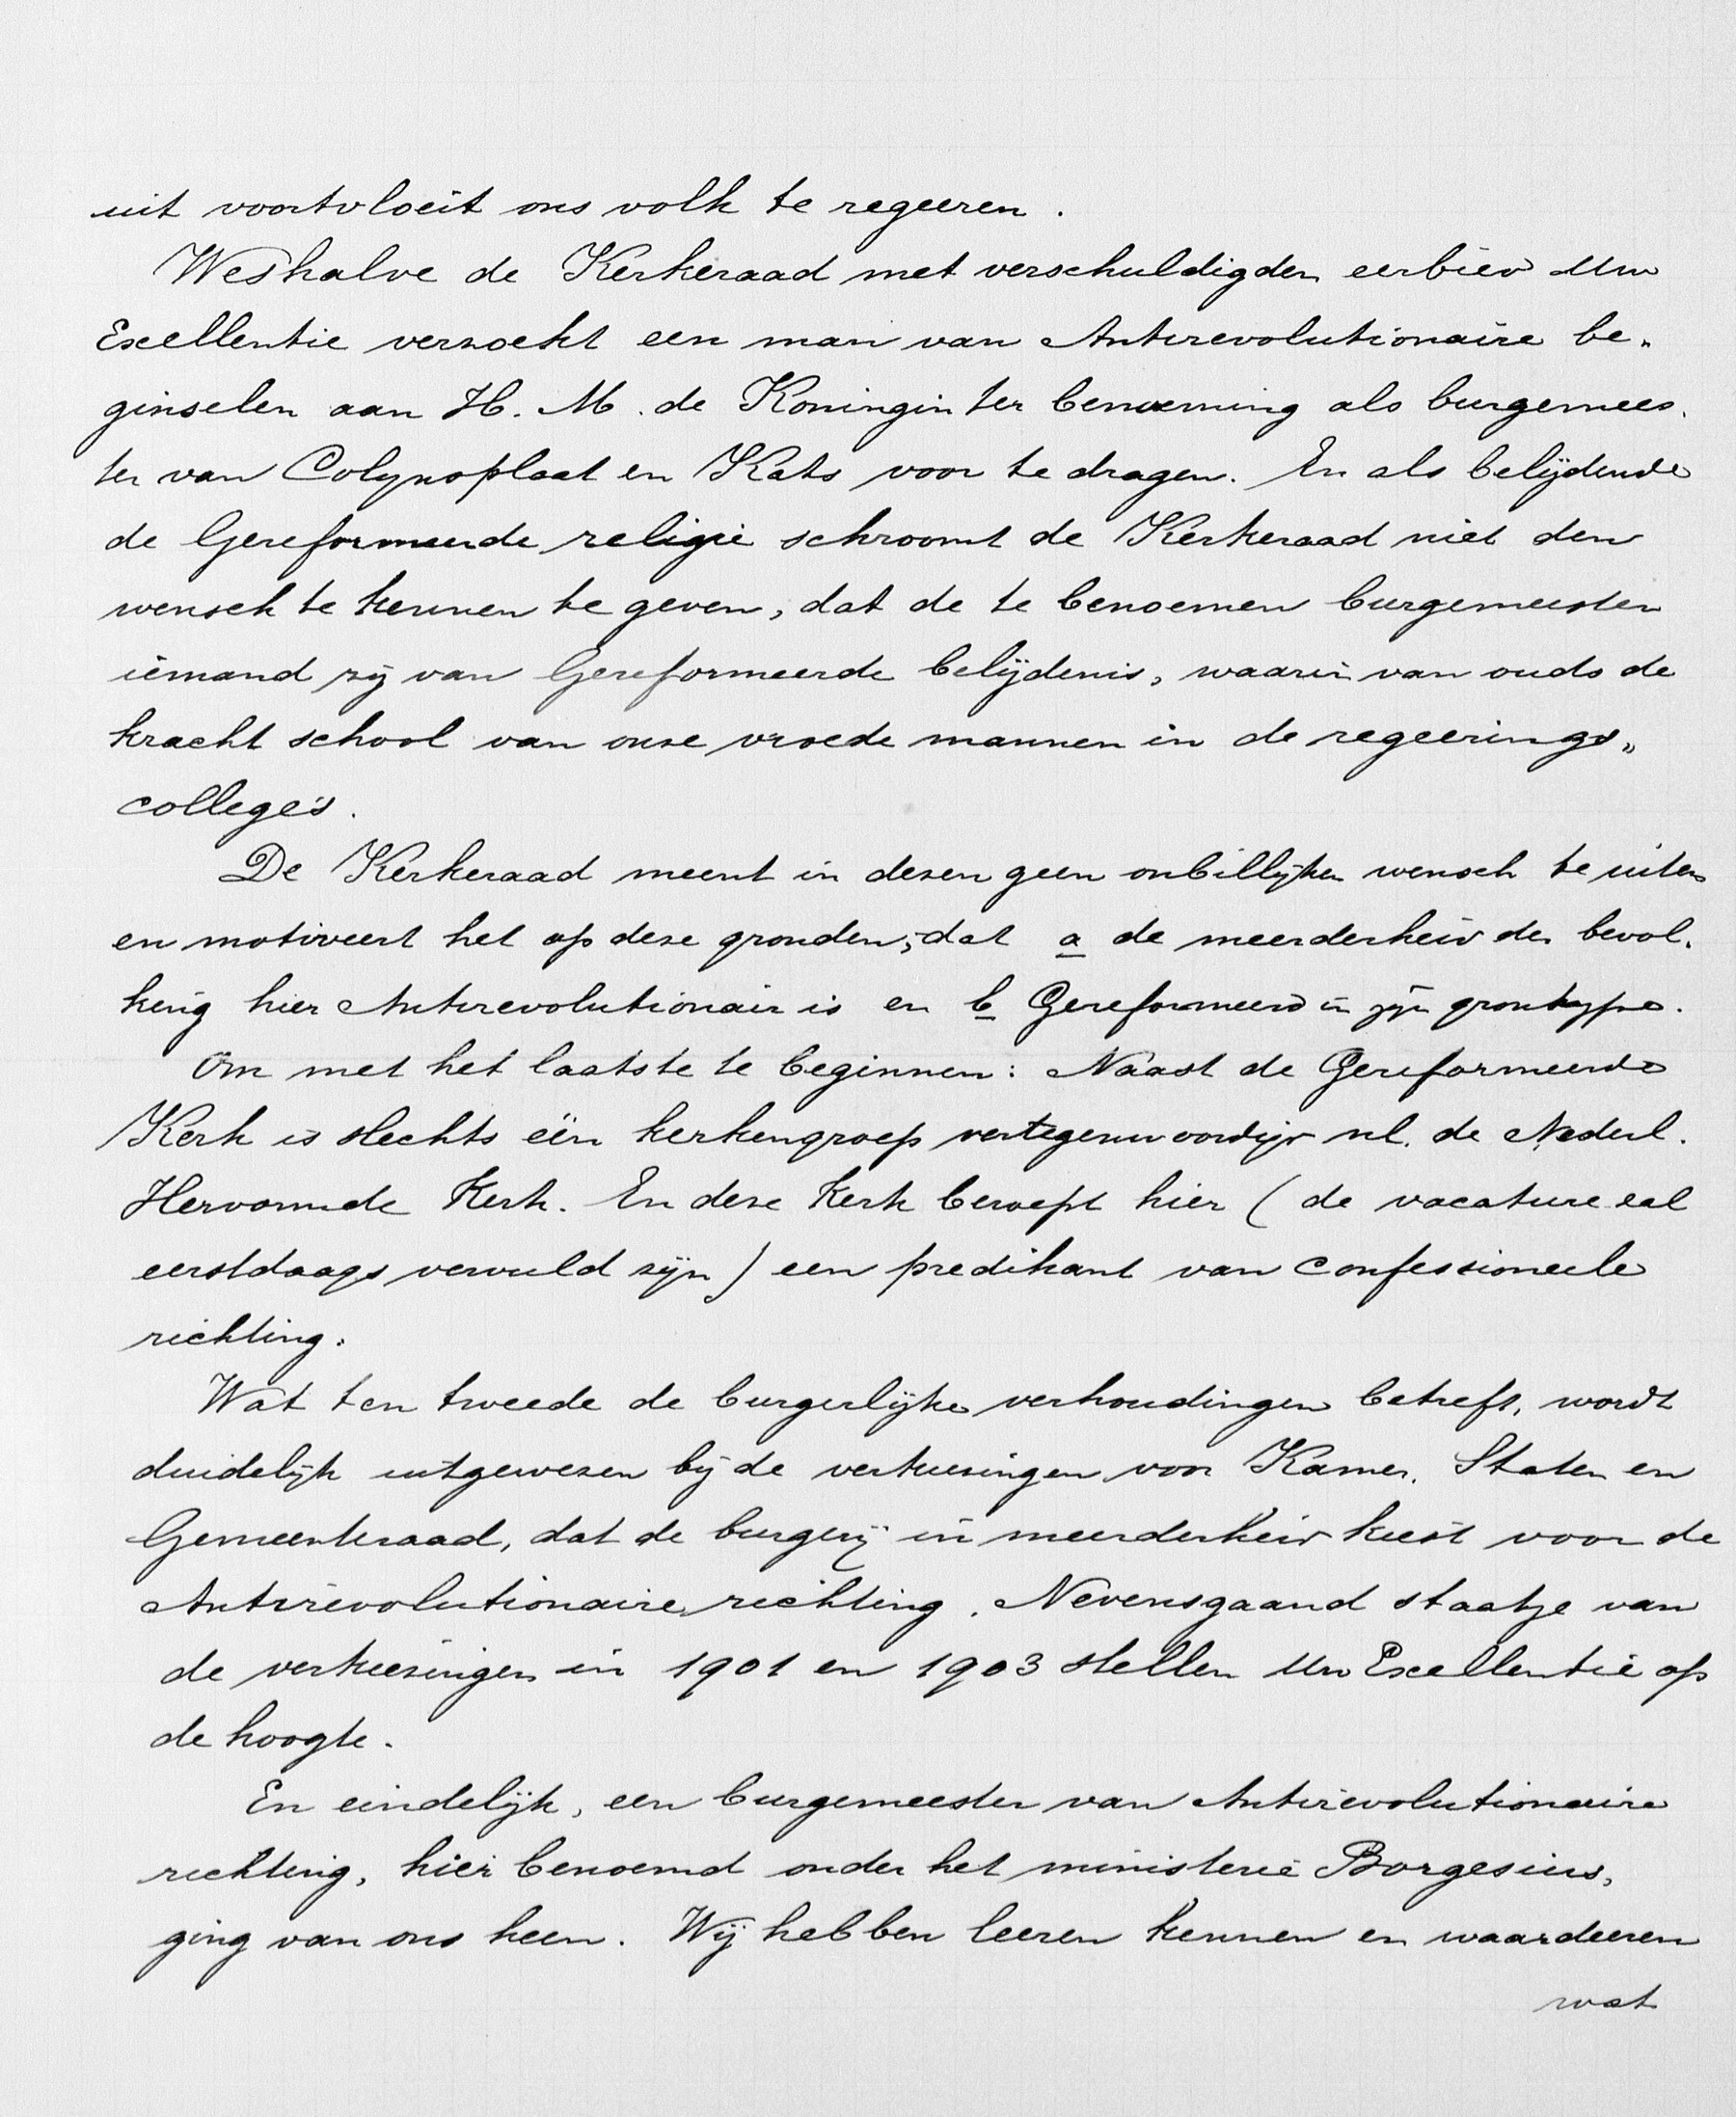 uit voortvloeit ons volk te regeeren.
Weshalve de Kerkeraad met verschuldigden eerbied Uw
Excellentie verzoekt een man van Antirevolutionaire be„
ginselen aan H. M. de Koningin ter benoeming als burgemees.
ter van Colynsplaat en Kats voor te dragen. En als belijdende
de Gereformeerde religie schroomt de Kerkeraad niet den
wensch te kennen te geven, dat de te benoemen burgemeester
iemand zij van Gereformeerde belijdenis, waarin van ouds de
kracht school van onze vroede mannen in de regeerings„
college's.
De Kerkeraad meent in dezen geen onbillijken wensch te uiten
en motiveert het op deze gronden, dat a de meerderheid der bevol.
king hier Antirevolutionair is en b Gereformeerd in zijn grontype.
Om met het laatste te beginnen: Naast de Gereformeerde
Kerk is slechts één kerkengroep vertegenwoordigd nl. de Nederl.
Hervormde Kerk. En deze Kerk beroept hier (de vacature zal
eerstdaags vervuld zijn) een predikant van confessioneele
richting.
Wat ten tweede de burgerlijke verhoudingen betreft, wordt
duidelijk uitgewezen bij de verkiezingen voor Kamer, Staten en
Gemeenteraad, dat de burgerij in meerderheid kiest voor de
Antirevolutionaire richting. Nevensgaand staatje van
de verkiezingen in 1901 en 1903 stellen Uw Excellentie op
de hoogte.
En eindelijk, een burgemeester van Antirevolutionaire
richting, hier benoemd onder het ministerie Borgesius,
ging van ons heen. Wij hebben leeren kennen en waardeeren
wat